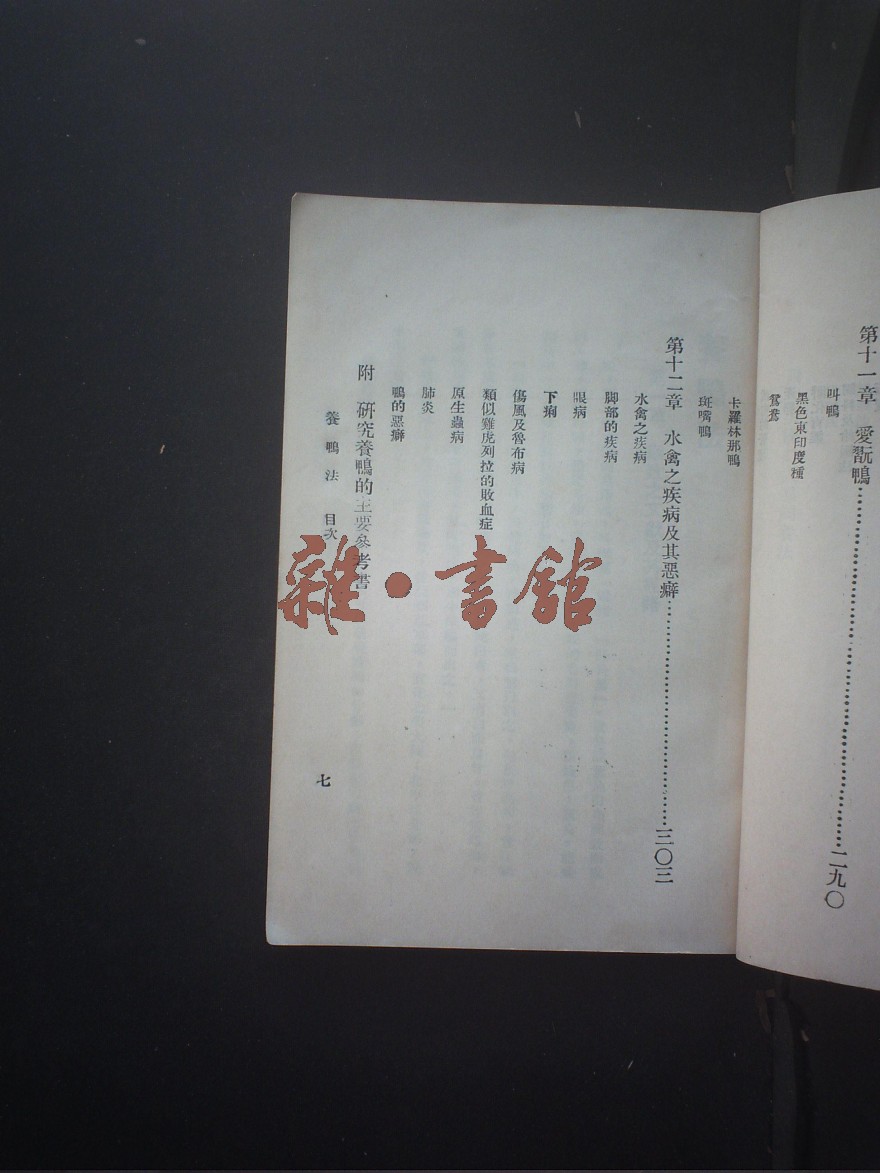 第十一章　愛翫鴨……二九〇
叫鴨
黑色東印度種
鴛鴦
卡羅林那鴨
斑嘴鴨
第十二章　水禽之疾病及其惡癖……三〇三
水禽之疾病
脚部的疾病
眼病
下痢
傷風及魯布病
類似雞虎列拉的敗血症
原生蟲病
肺炎
鴨的惡癖
附　研究養鴨的主要參考書
養鴨法　目次
七
雜·書館